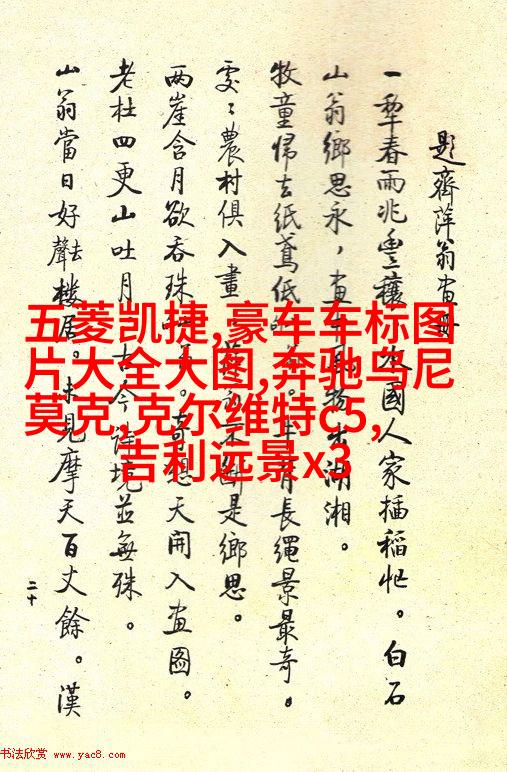 題齊萍翁畫
一犁春雨兆豐穰 國人家插稻忙。白石
山翁鄉思永,畫 物出湖湘。
牧童歸去紙鳶低 牛背長繩景最奇。
處〻農村俱入畫 是鄉思。
兩崖含月欲吞珠 奇想天開入畫圖。
老杜四更山吐月 古今詩境並無殊。
山翁當日好去聲樓居。未見摩天百丈餘。漢
二十
五菱凯捷,豪车车标图
片大全大图,奔驰乌尼
莫克,克尔维特c5,
吉利远景x3
书法欣赏 www.yac8.com